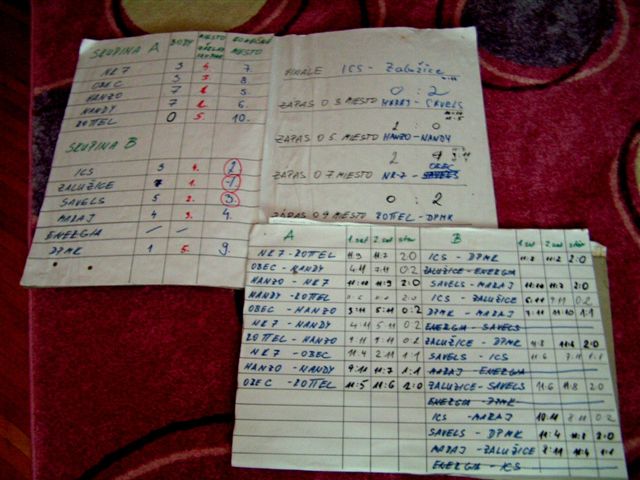 SKUPINA A BODY MIESTO V ZÁKLAD. SKUPINE KONEČNÉ MIESTO
NR 7 3 7.
OBEC 3 8.
HANZO 7 5.
NANDY 7 6.
ROTTEL 0 5. 10.
SKUPINA B
ICS 3 4. 2.
ZALUŽICE 7 1. 1.
SAVELS 5 2. 3.
MARAJ 4 3. 4.
ENERGIA
DPMK 1 5. 9.
FINALE ICS - Zalužice
0 : 2
ZÁPAS O 3. MIESTO MARAJ - SAVELS
1 : 0
ZÁPAS O 5. MIESTO HANZO - NANDY
2
ZÁPAS O 7 MIESTO NR-7 - OBEC
0 : 2
ZÁPAS O 9 MIESTO ROTTEL - DPMK
A 1. set 2. set stav
NR 7 - ROTTEL 11:9 11:7 2:0
OBEC - NANDY 4:11 7:11 0:2
HANZO - NR7 11:10 11:9 2:0
NANDY - ROTTEL 2:0
OBEC - HANZO 3:11 5:11 0:2
NR 7 - NANDY 4:11 5:11 0:2
ROTTEL - HANZO 9:11 7:11 0:2
NR 7 - OBEC 11:4 2:11 1:1
HANZO - NANDY 9:11 11:7 1:1
OBEC - ROTTEL 11:5 11:6 2:0
B 1. set 2. set stav
ICS - DPMK 11:2 2:0
ZALUŽICE - ENERGIA
SAVELS - MARAJ 11:10 11:7 2:0
ICS - ZALUŽICE 5:11 9:11 0:2
DPMK - MARAJ 7:11 11:10 1:1
ENERGIA - SAVELS
ZALUŽICE - DPMK 11:8 2:0
SAVELS - ICS 11:6 7:11 1:1
MARAJ - ENERGIA
ZALUŽICE - SAVELS 11:6 11:8 2:0
ENERGIA - DPMK
ICS - MARAJ 10:11 8:11 0:2
SAVELS - DPMK 11:4 11:8 2:0
MARAJ - ZALUŽICE 8:11 11:4 1:1
ENERGIA - ICS